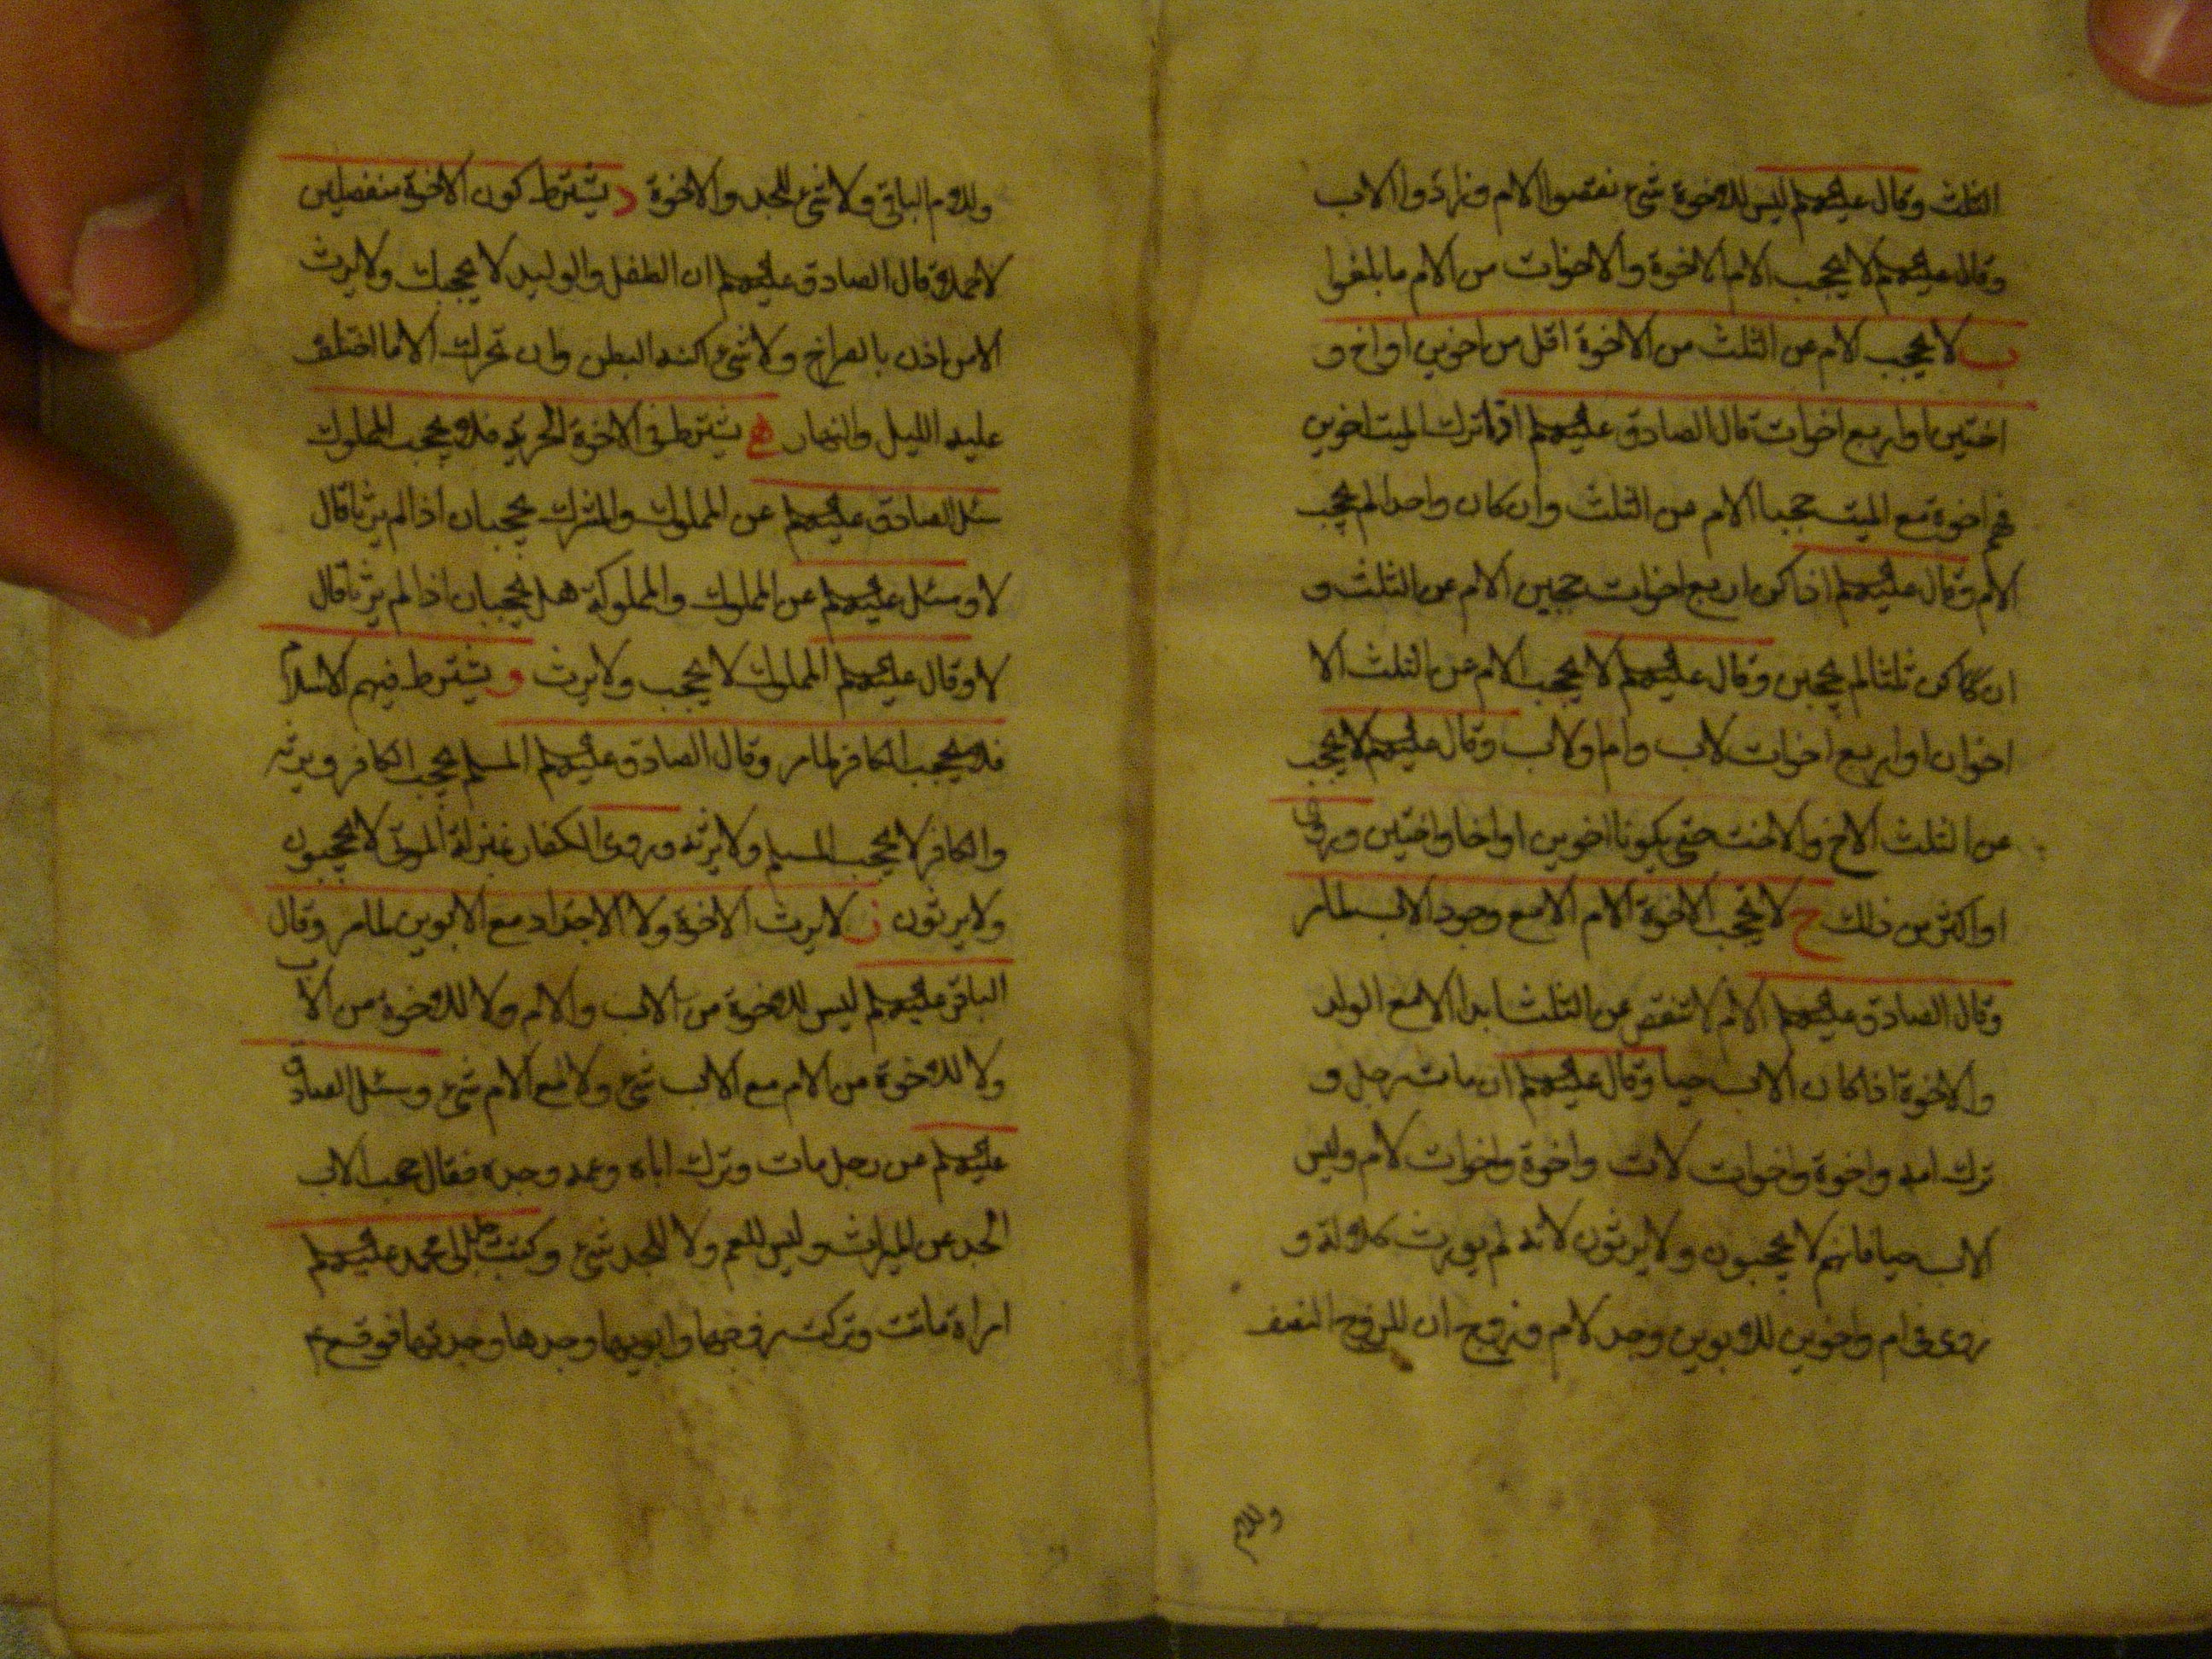 الثلث وقال عليه السلم ليس للاخوة شئ نقصوا الام وزادوا الاب
وقال عليه السلم لا يحجب الام الاخوة والاخوات من الام ما بلغوا
ب لا يحجب الام عن الثلث من الاخوة اقل من اخوين او اخ و
اختين او اربع اخوات قال الصادق عليه السلم اذا ترك الميت اخوين
فهم اخوة مع الميت حجبا الام عن الثلث وان كان واحدا لم يحجب
الام وقال عليه السلم اذا كن اربع اخوات حجبن الام عن الثلث و
ان كن ثلثا لم يحجبن وقال عليه السلم لا يحجب الام عن الثلث الا
اخوان او اربع اخوات لاب وام او لاب وقال عليه السلم لا يحجب
عن الثلث الاخ والاخت حتى يكونا اخوين او اخا واختين وروى
او اكثر من ذلك ح لا يحجب الاخوة الام الا مع وجود الاب لما مر
وقال الصادق عليه السلم الام لا تنقص عن الثلث ابدا الا مع الولد
والاخوة اذا كان الاب حيا وقال عليه السلم ان مات رجل و
ترك امه واخوة واخوات لاب واخوة واخوات لام وليس
الاب حيا فانهم لا يحجبون ولا يرثون لانه لم يورث كلالة و
روى فى ام واخوين للابوين وجد لام وزوج ان للزوج النصف
وللام
وللام الباقى ولا شئ للجد والاخوة د يشترط كون الاخوة منفصلين
لا حملا وقال الصادق عليه السلم ان الطفل والوليد لا يحجبك ولا يرث
الا من اذن بالصراخ ولا شئ اكنه البطن وان تحرك الا ما اختلف
عليه الليل والنهار ه يشترط فى الاخوة الحرية فلا يحجب المملوك
سئل الصادق عليه السلم عن المملوك والمشرك يحجبان اذا لم يرثا قال
لا وسئل عليه السلم عن المملوك والمملوكة هل يحجبان اذا لم يرثا قال
لا وقال عليه السلم المملوك لا يحجب ولا يرث و يشترط فيهم الاسلام
فلا يحجب الكافر لما مر وقال الصادق عليه السلم المسلم يحجب الكافر ويرثه
والكافر لا يحجب المسلم ولا يرثه وروى الكفار بمنزلة الموتى لا يحجبون
ولا يرثون ز لا يرث الاخوة ولا الاجداد مع الابوين لما مر وقال
الباقر عليه السلم ليس للاخوة من الاب والام ولا للاخوة من الاب
ولا للاخوة من الام مع الاب شئ ولا مع الام شئ وسئل الصادق
عليه السلم عن رجل مات وترك اباه وعمه وجده فقال حجب الاب
الجد عن الميراث وليس للعم ولا للجد شئ وكتب رجل الى ابى محمد عليه السلم
امراة ماتت وتركت زوجها وابويها وجدها وجدتها فوقع ع